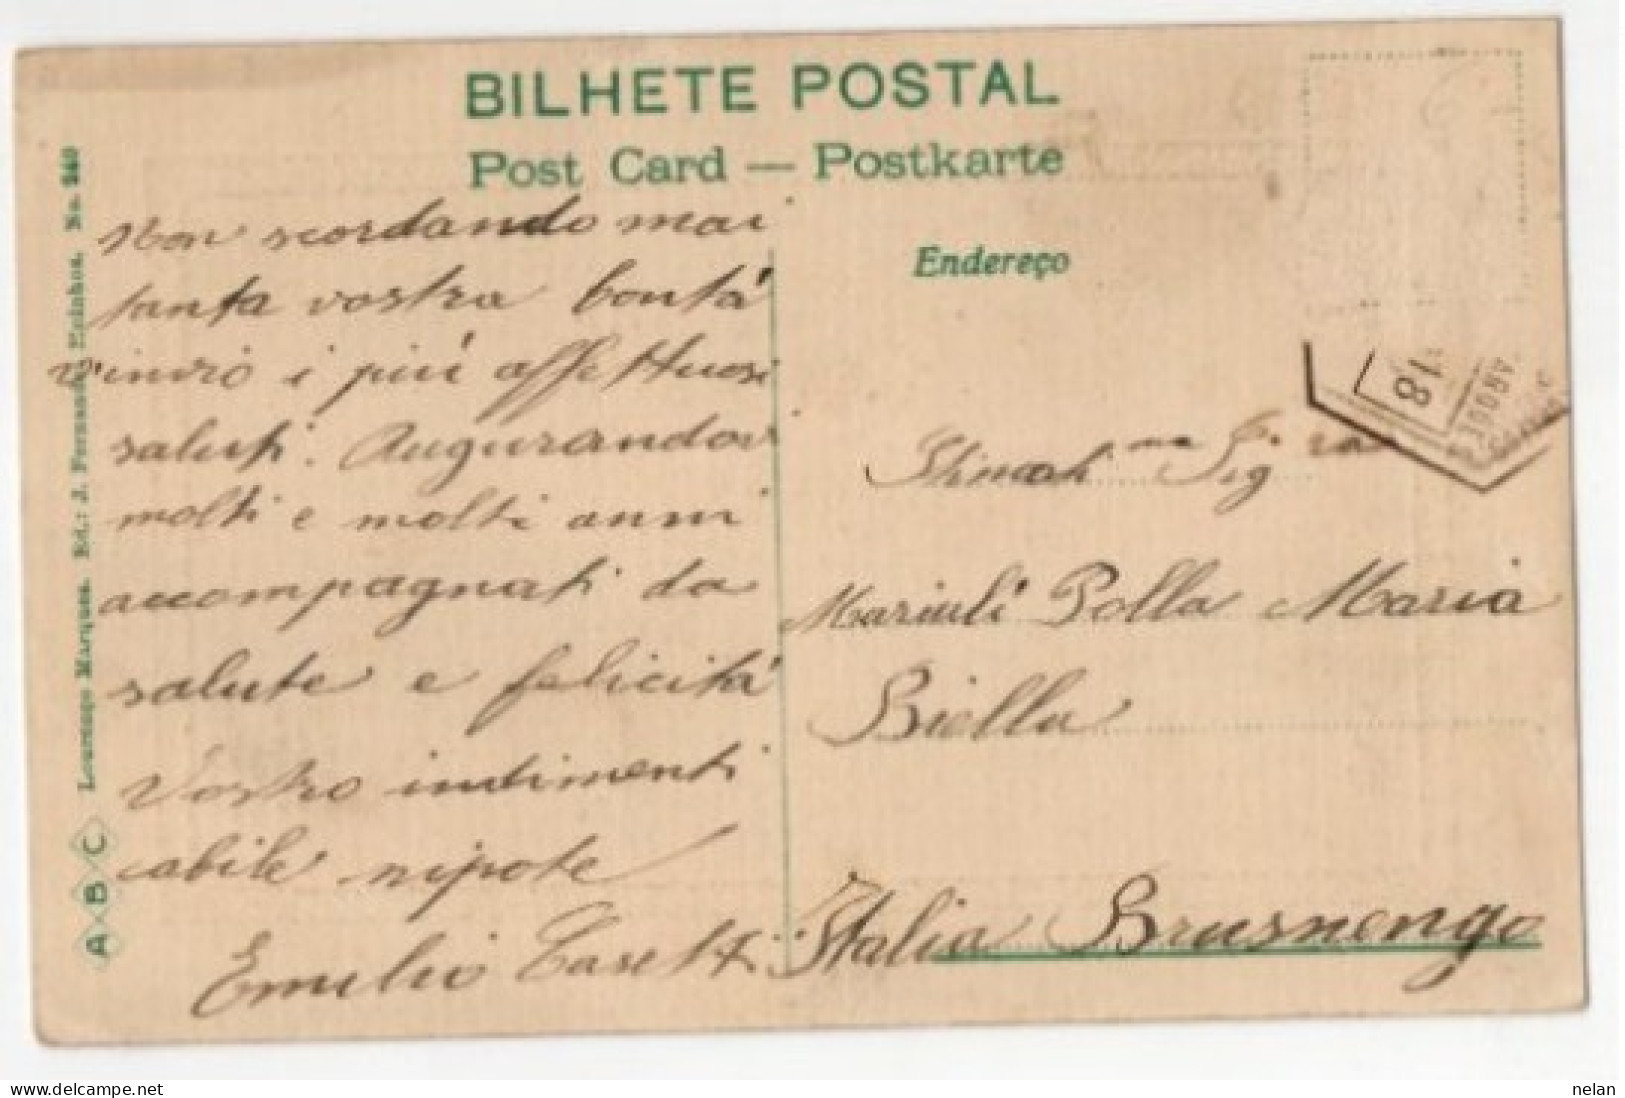 BILHETE POSTAL
Post Card — Postkarte
Endereço
Non scordando mai
tanta vostra bontà
v'invio i più affettuosi
saluti. Augurandovi
molti e molti anni
accompagnati da
salute e felicità
Vostro indimenti
cabile nipote
Emilio Casetti
Stimati ma Sig ra
Mariuli Polla Maria
Biella
Italia Brusnengo
18
A B C Lourenço Marques. Ed.: J. Fernandes. No. 240
www.delcampe.net
nelan